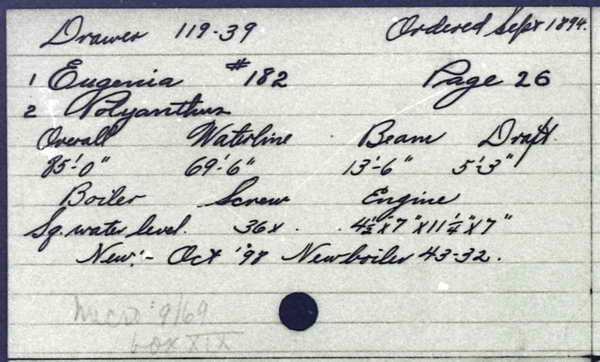 Drawer 119-39 Ordered Sept 1894.
1 Eugenia #182 Page 26
2 Polyanthus
Overall Waterline Beam Draft.
85'-0" 69'-6" 13'-6" 5'-3"
Boiler Screw Engine
Sq. water level. 36x. 4½"x7"x11¼"x7"
New:- Oct '98 New boiler 43-32.
Micro 9/69
box XIX